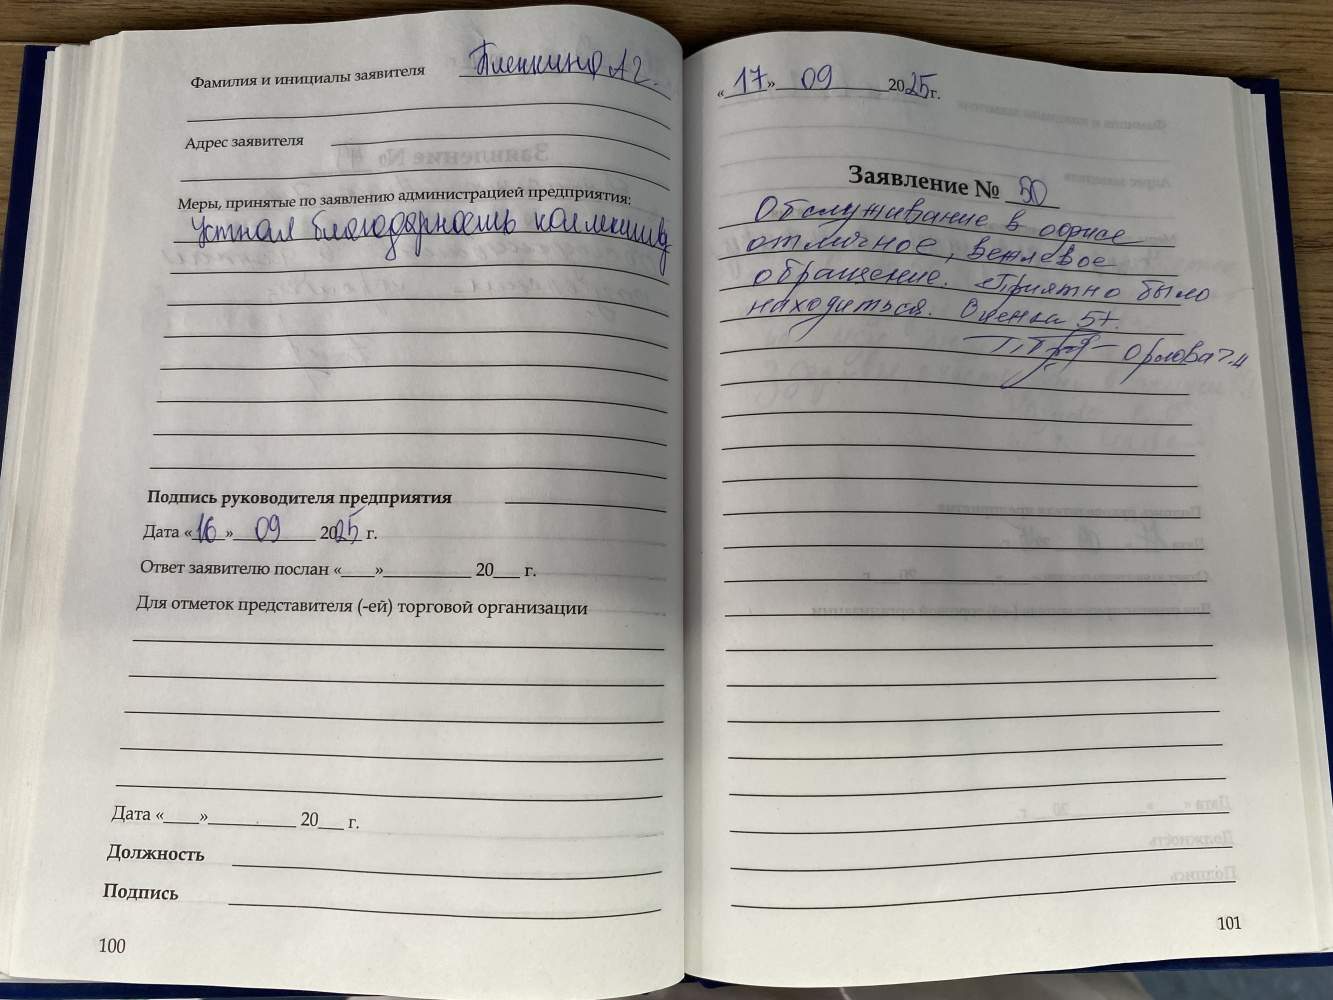 Фамилия и инициалы заявителя Пленкина А Г.
Адрес заявителя
Меры, принятые по заявлению администрацией предприятия:
Устная благодарность коллективу
Подпись руководителя предприятия
Дата «16» 09 2025 г.
Ответ заявителю послан «____»__________ 20___ г.
Для отметок представителя (-ей) торговой организации
Дата «____»__________ 20___ г.
Должность
Подпись
100
«17» 09 2025 г.
Заявление № 50
Обслуживание в офисе
отличное, вежливое
обращение. Приятно было
находиться. Оценка 5+.
Орлова
101